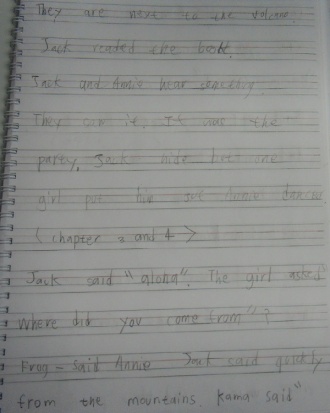 They are next to the volcano.
Jack readed the book.
Jack and Annie hear
They it. It was the
party, Jack hide but one
girl put him Annie dancing
< chapter 3 and 4 >
Jack said "aloha". The girl
Where did you come from"?
Frog - said Annie Jack said quickly
from the mountains. Kama said"